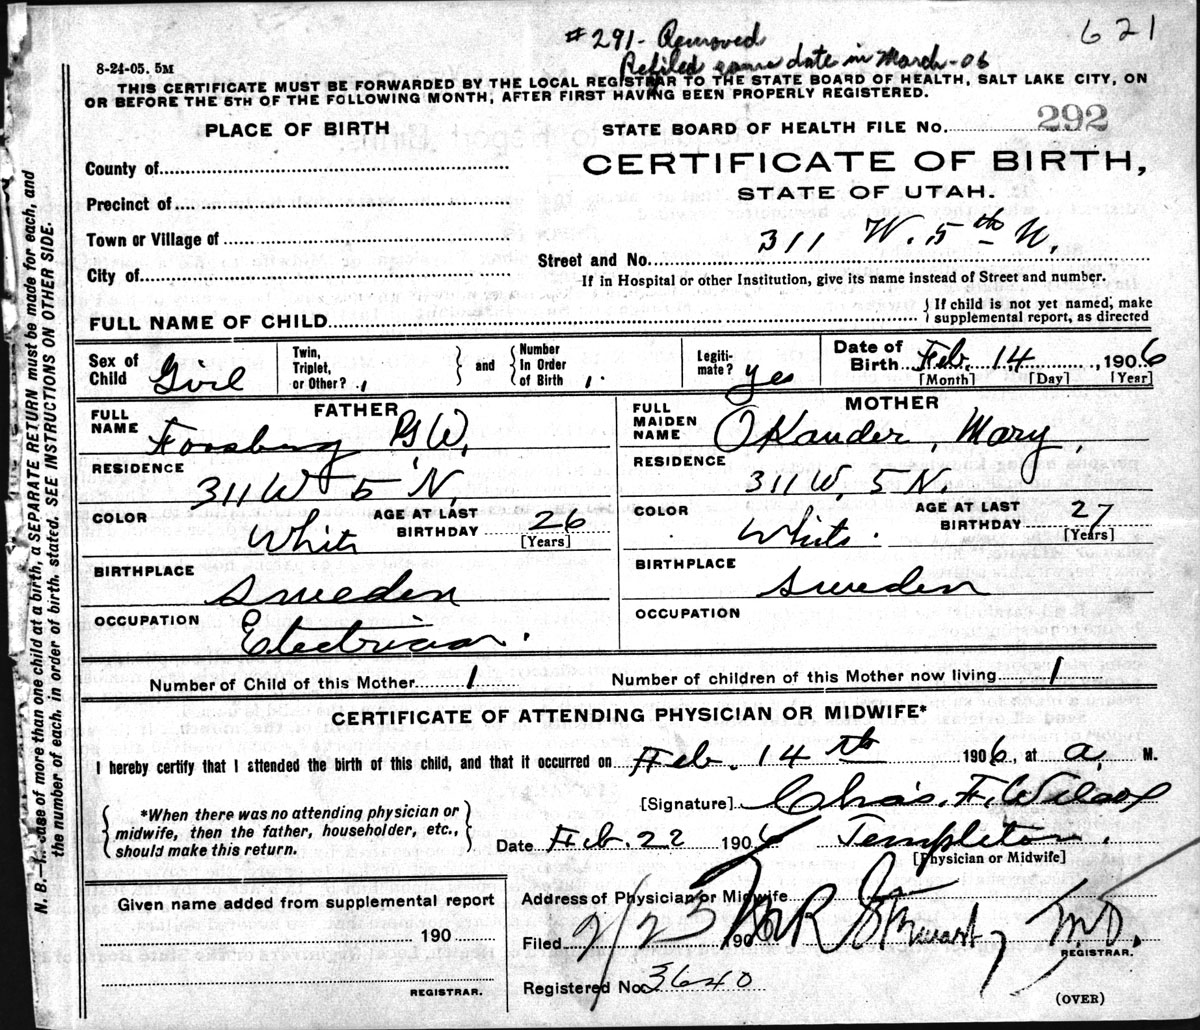 621
#291- Removed
Refiled same date in March-06
8-24-05. 5M
THIS CERTIFICATE MUST BE FORWARDED BY THE LOCAL REGISTRAR TO THE STATE BOARD OF HEALTH, SALT LAKE CITY, ON
OR BEFORE THE 5TH OF THE FOLLOWING MONTH, AFTER FIRST HAVING BEEN PROPERLY REGISTERED.
PLACE OF BIRTH
STATE BOARD OF HEALTH FILE No. 292
CERTIFICATE OF BIRTH,
STATE OF UTAH.
County of
Precinct of
Town or Village of
City of
Street and No. 311 W. 5th N.
If in Hospital or other Institution, give its name instead of Street and number.
FULL NAME OF CHILD
{If child is not yet named, make
supplemental report, as directed
Sex of Child Girl
Twin, Triplet, or Other?
} and {
Number In Order of Birth
Legiti-mate? yes
Date of Birth Feb. 14, 1906
[Month] [Day] [Year]
FATHER
FULL NAME Forsberg G W.
RESIDENCE
311 W 5 N.
COLOR White
AGE AT LAST BIRTHDAY 26
[Years]
BIRTHPLACE
Sweden
OCCUPATION
Electrician.
MOTHER
FULL MAIDEN NAME Okander, Mary,
RESIDENCE
311 W. 5 N.
COLOR White.
AGE AT LAST BIRTHDAY 27
[Years]
BIRTHPLACE
Sweden
OCCUPATION
Number of Child of this Mother 1
Number of children of this Mother now living 1
CERTIFICATE OF ATTENDING PHYSICIAN OR MIDWIFE*
I hereby certify that I attended the birth of this child, and that it occurred on Feb. 14th 1906, at a. M.
{*When there was no attending physician or
midwife, then the father, householder, etc.,
should make this return.}
[Signature] Chas. F. Wilcox
Date Feb. 22 1906 Templeton.
[Physician or Midwife]
Given name added from supplemental report
190
REGISTRAR.
Address of Physician or Midwife
Filed 2/23 190 R Stewart, M.D.
REGISTRAR.
Registered No. 3640
(OVER)
N. B.—In case of more than one child at a birth, a SEPARATE RETURN must be made for each, and
the number of each, in order of birth, stated. SEE INSTRUCTIONS ON OTHER SIDE.